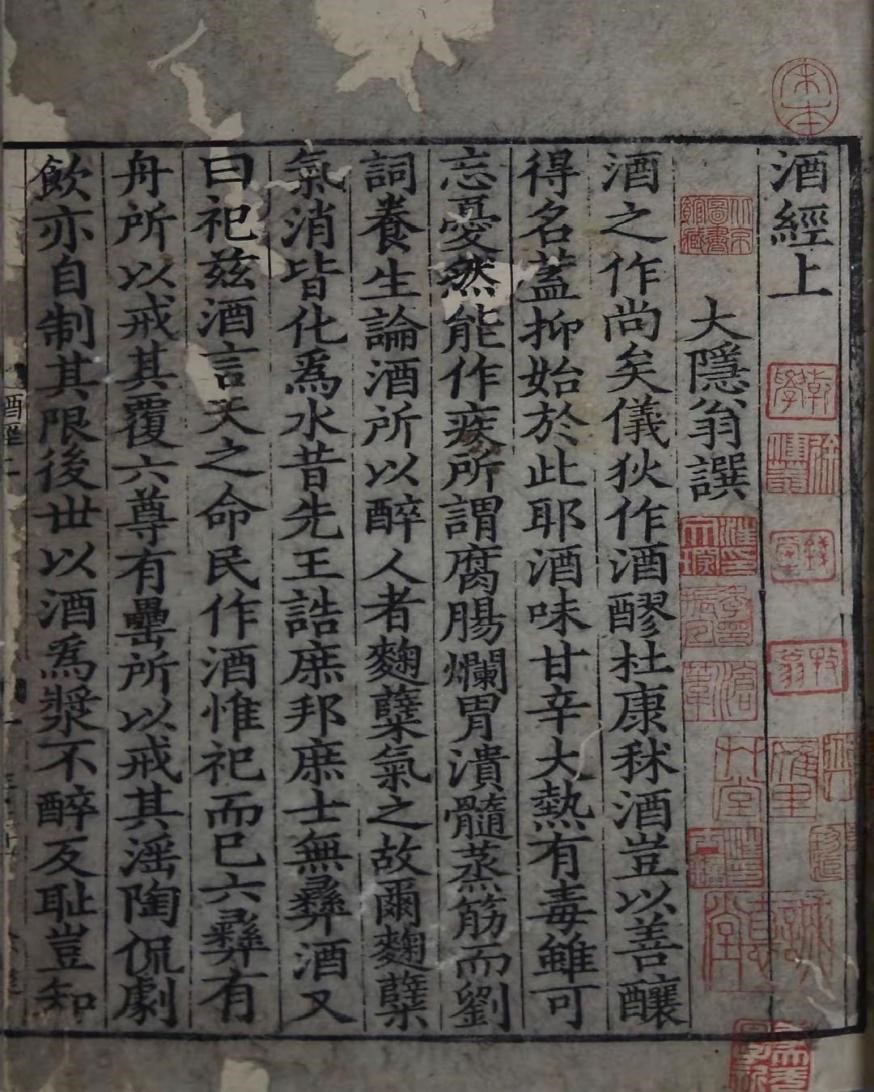 酒經上
大隱翁譔
酒之作尚矣儀狄作酒醪杜康秫酒豈以善釀
得名蓋抑始於此耶酒味甘辛大熱有毒雖可
忘憂然能作疾所謂腐腸爛胃潰髓蒸筋而劉
詞養生論酒所以醉人者麴糱氣之故爾麴糱
氣消皆化爲水昔先王誥庶邦庶士無彝酒又
曰祀茲酒言天之命民作酒惟祀而已六彝有
舟所以戒其覆六尊有罍所以戒其滛陶侃劇
飲亦自制其限後世以酒爲漿不醉反耻豈知